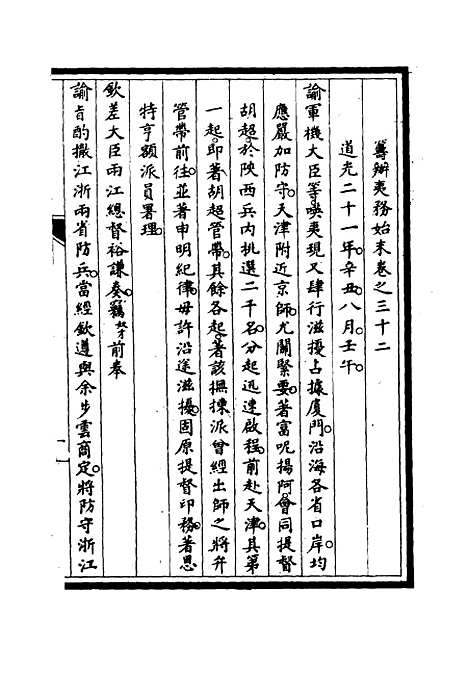 籌辦夷務始末卷之三十二
道光二十一年。辛丑。八月。壬午。
諭軍機大臣等。𠸄夷現又肆行滋擾。占據廈門。沿海各省口岸。均
應嚴加防守。天津附近京師。尤關緊要。著富呢揚阿。會同提督
胡超。於陝西兵內挑選二千名。分起迅速啟程。前赴天津。其第
一起。即著胡超管帶。其餘各起。著該撫揀派曾經出師之將弁
管帶前往。並著申明紀律。毋許沿途滋擾。固原提督印務。著恩
特亨額派員署理。
欽差大臣兩江總督裕謙奏。竊奴才前奉
諭旨酌撤江浙兩省防兵。當經欽遵與余步雲商定。將防守浙江